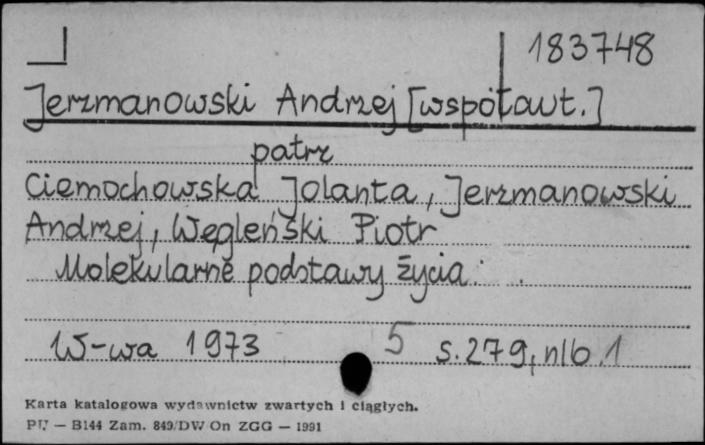 183748
Jerzmanowski Andrzej [współaut.]
patrz
Ciemochowska Jolanta, Jerzmanowski
Andrzej, Węgleński Piotr
Molekularne podstawy życia.
W-wa 1973 5 s. 279, nlb. 1
Karta katalogowa wydawnictw zwartych i ciągłych.
PU — B144 Zam. 849/DW On ZGG — 1991